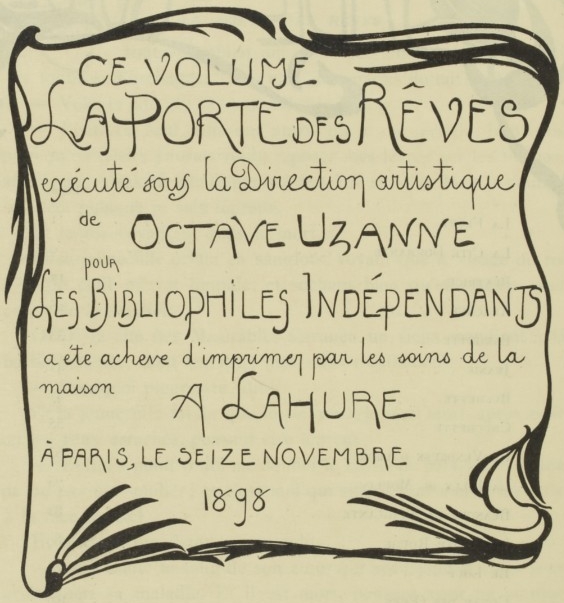 CE VOLUME
LA PORTE DES RÊVES
exécuté sous la Direction artistique
de OCTAVE UZANNE
POUR
LES BIBLIOPHILES INDÉPENDANTS
a été achevé d'imprimer par les soins de la
maison A LAHURE
À PARIS, LE SEIZE NOVEMBRE
1898